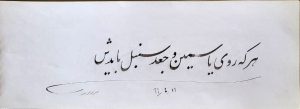 هر که روی یاسمین و جعد سنبل بایدش